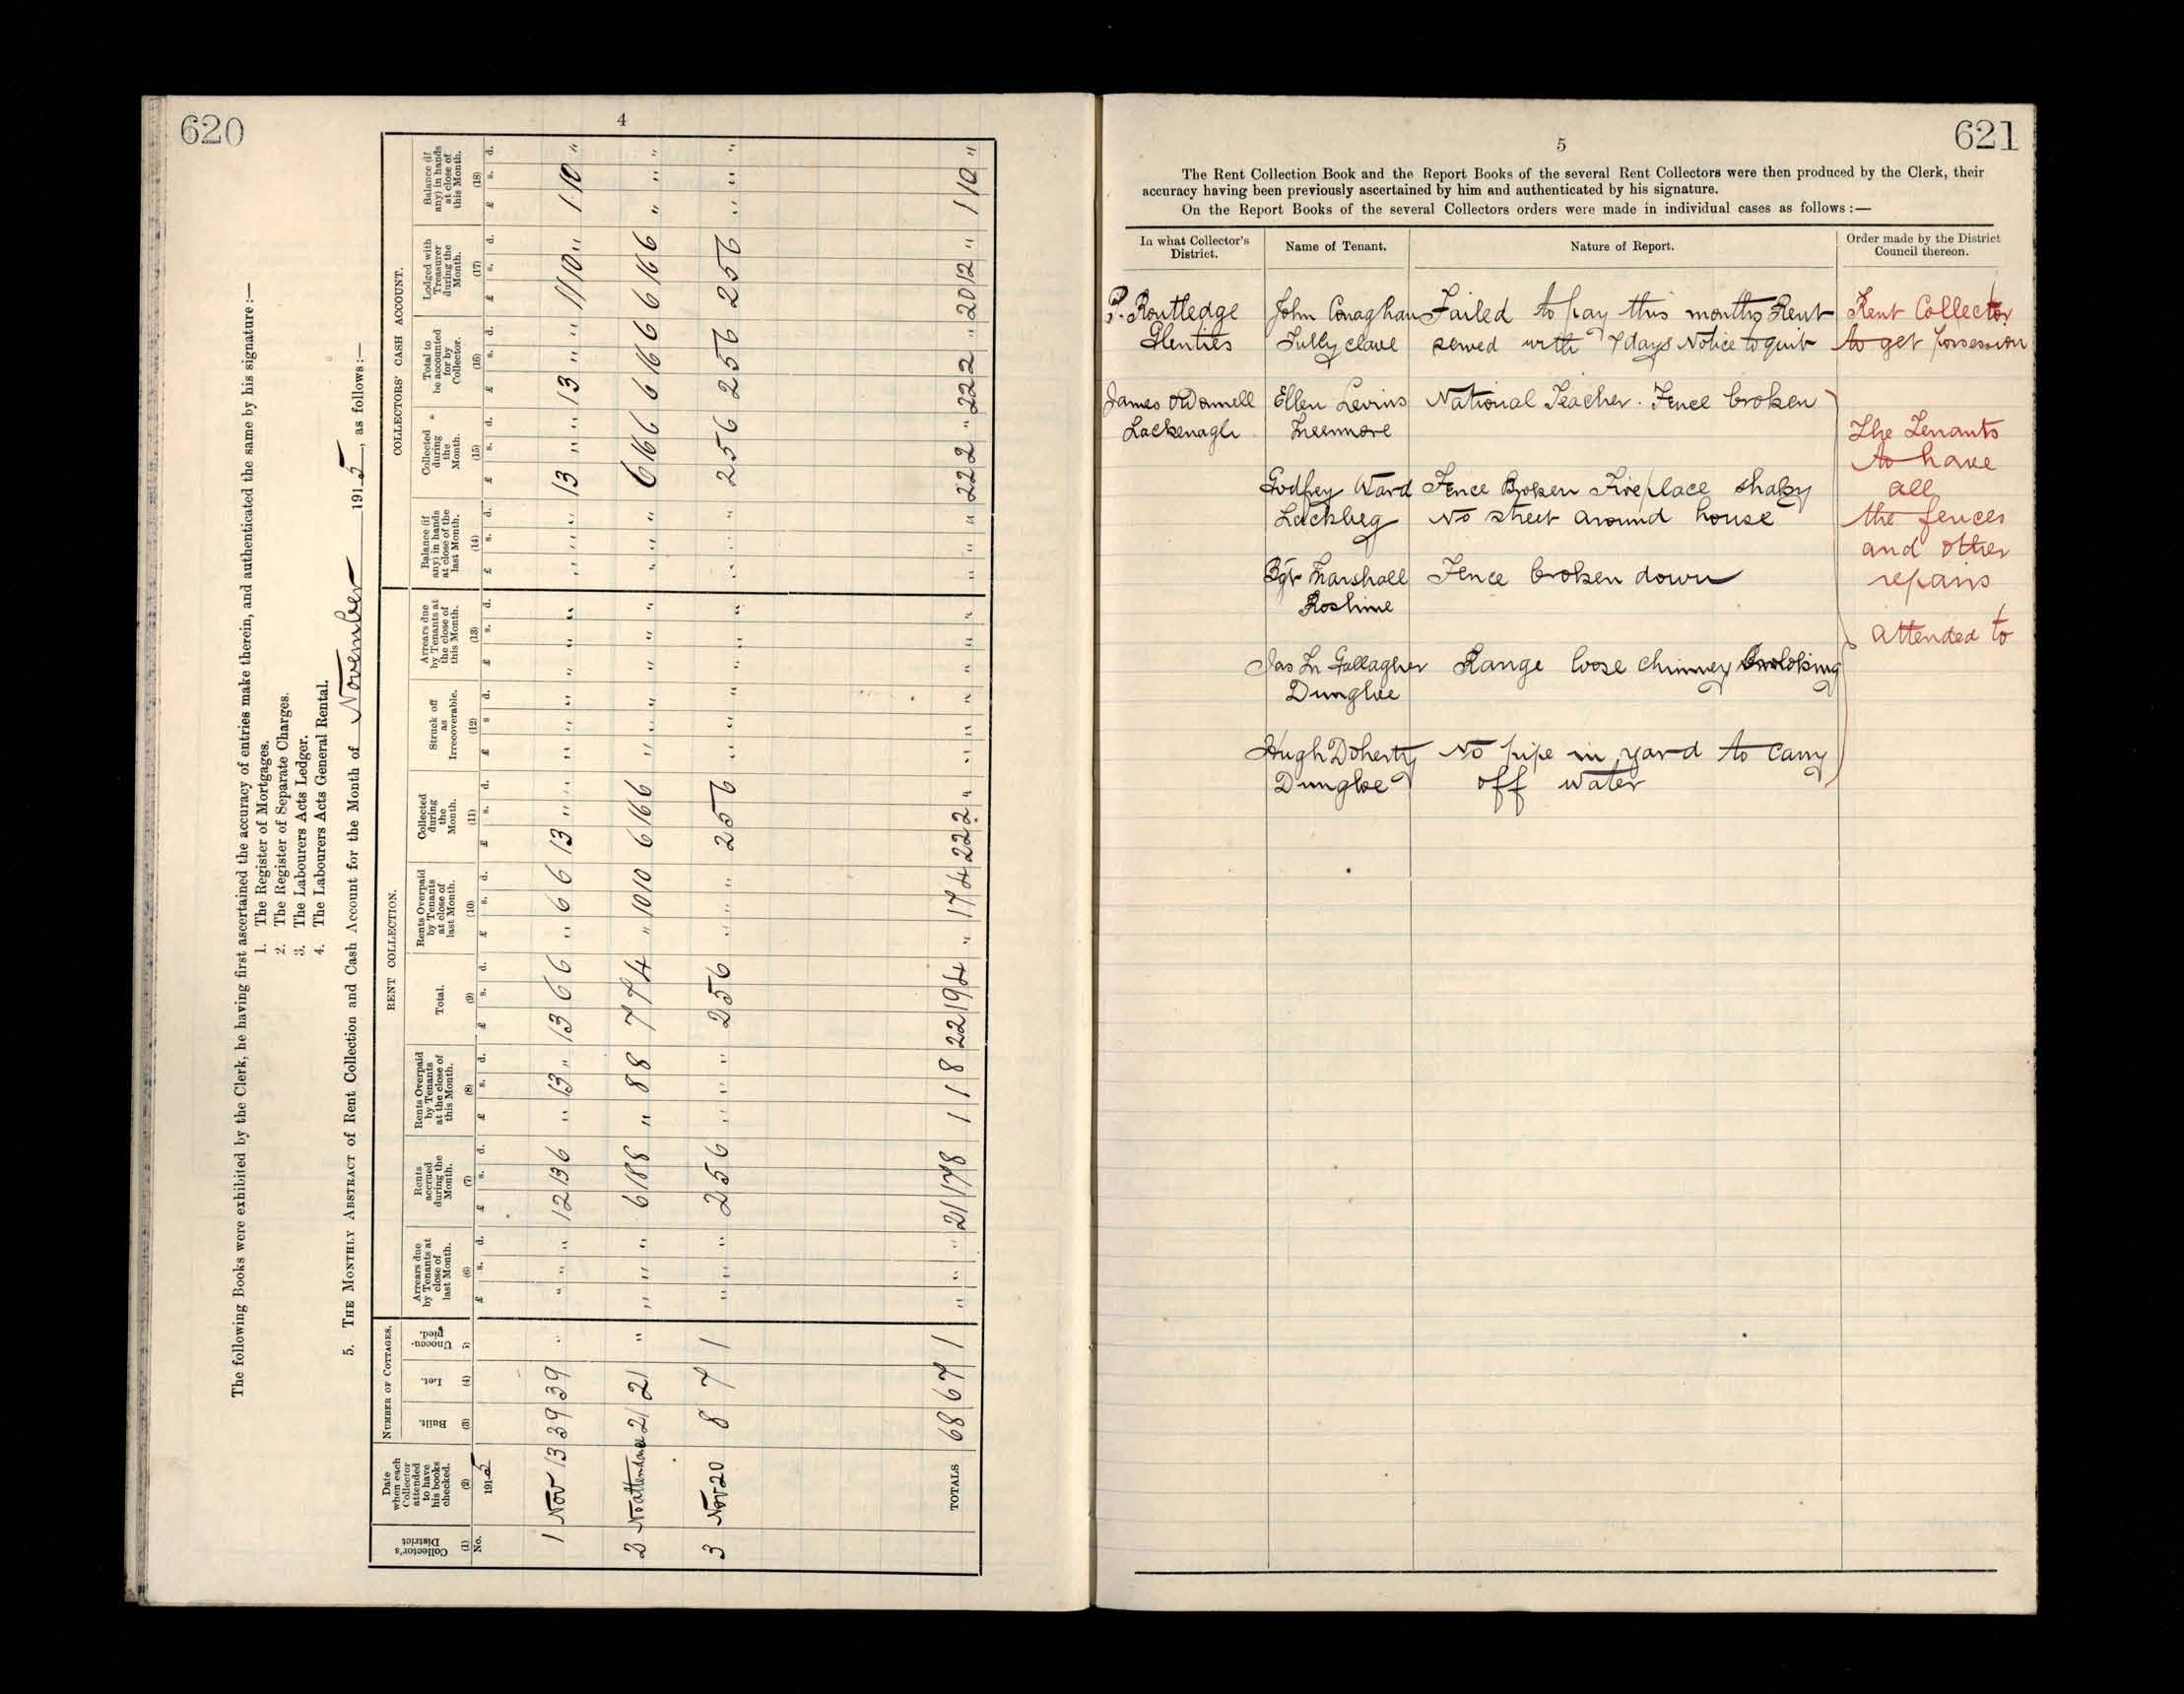 620
4
The following Books were exhibited by the Clerk, he having first ascertained the accuracy of entries make therein, and authenticated the same by his signature:—
1. The Register of Mortgages.
2. The Register of Separate Charges.
3. The Labourers Acts Ledger.
4. The Labourers Acts General Rental.
5. THE MONTHLY ABSTRACT of Rent Collection and Cash Account for the Month of November 1915, as follows:—
NUMBER OF COTTAGES. RENT COLLECTION. COLLECTORS' CASH ACCOUNT.
Collector's District (1) No.
Date when each Collector attended to have his books checked. (2) 1915
Built. (3)
Let. (4)
Unoccu-pied. 5
Arrears due by Tenants at close of last Month. (6) £ s. d.
Rents accrued during the Month. (7) £ s. d.
Rents Overpaid by Tenants at the close of this Month. (8) £ s. d.
Total. (9) £ s. d.
Rents Overpaid by Tenants at close of last Month. (10) £ s. d.
Collected during the Month. (11) £ s. d.
Struck off as Irrecoverable. (12) £ s d.
Arrears due by Tenants at the close of this Month. (13) £ s. d.
Balance (if any) in hands at close of the last Month. (14) £ s. d.
Collected during the Month. (15) £ s. d.
Total to be accounted for by Collector. (16) £ s. d.
Lodged with Treasurer during the Month. (17) £ s. d.
Balance (if any) in hands at close of this Month. (18) £ s. d.
1 Nov 13 39 39 " " " " 12 13 6 " 13 " 13 6 6 " 6 6 13 " " " " " " " " " " " 13 " " 13 " " 11 10 " 1 10 "
2 No attendance 21 21 " " " " 6 18 8 " 8 8 7 7 4 " 10 10 6 16 6 " " " " " " " " " 6 16 6 6 16 6 6 16 6 " " "
3 Nov 20 8 7 1 " " " 2 5 6 " " " 2 5 6 " " " 2 5 6 " " " " " " " " " 2 5 6 2 5 6 2 5 6 " " "
TOTALS 68 67 1 " " " 21 17 8 1 1 8 22 19 4 " 17 4 22 2 " " " " " " " " " " 22 2 " 22 2 " 20 12 " 1 10 "
621
5
The Rent Collection Book and the Report Books of the several Rent Collectors were then produced by the Clerk, their
accuracy having been previously ascertained by him and authenticated by his signature.
On the Report Books of the several Collectors orders were made in individual cases as follows:—
In what Collector's District. Name of Tenant. Nature of Report. Order made by the District Council thereon.
P. Routledge John Conaghan Failed to pay this months Rent Rent Collector
Glenties Tullyclave served with 7 days Notice to quit to get possession
James O'Donnell Ellen Levins National Teacher. Fence broken
Lackenagh The Tenants
to have
Godfrey Ward Fence Broken Fireplace shaky all
Lackbeg No street around house the fences
and other
Sgt Marshall Fence broken down repairs
Roshine
attended to
Jas Gallagher Range loose chimney
Dungloe
Hugh Doherty No pipe in yard to carry
Dungloe off water